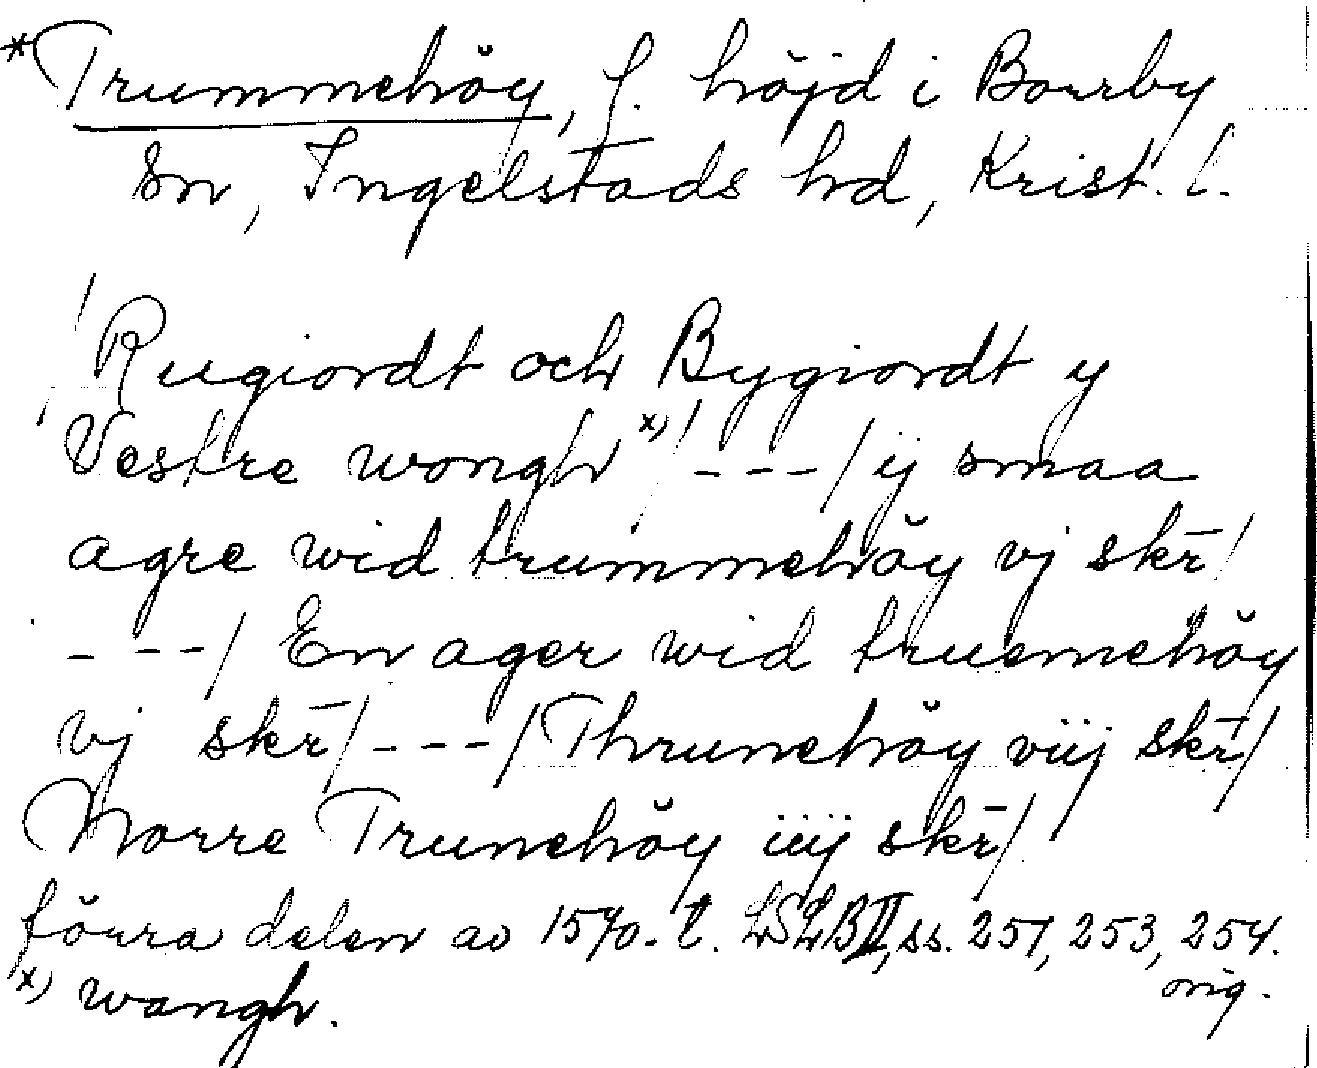 *Trummehöy, f. höjd i Borrby
sn, Ingelstads hd, Krist. l.
/Rugiordt och Bygiordt y
Vestre wongh x)/ ---/ ij smaa
agre wid trummehöy vj skr̄/
---/ En ager wid truemehöy
vj skr̄/---/Thrunehöy viij skr̄/
Norre Trunehöy iiij skr̄/
förra delen av 1570-t. LSLB II, ss. 251, 253, 254.
orig.
x) wangh.